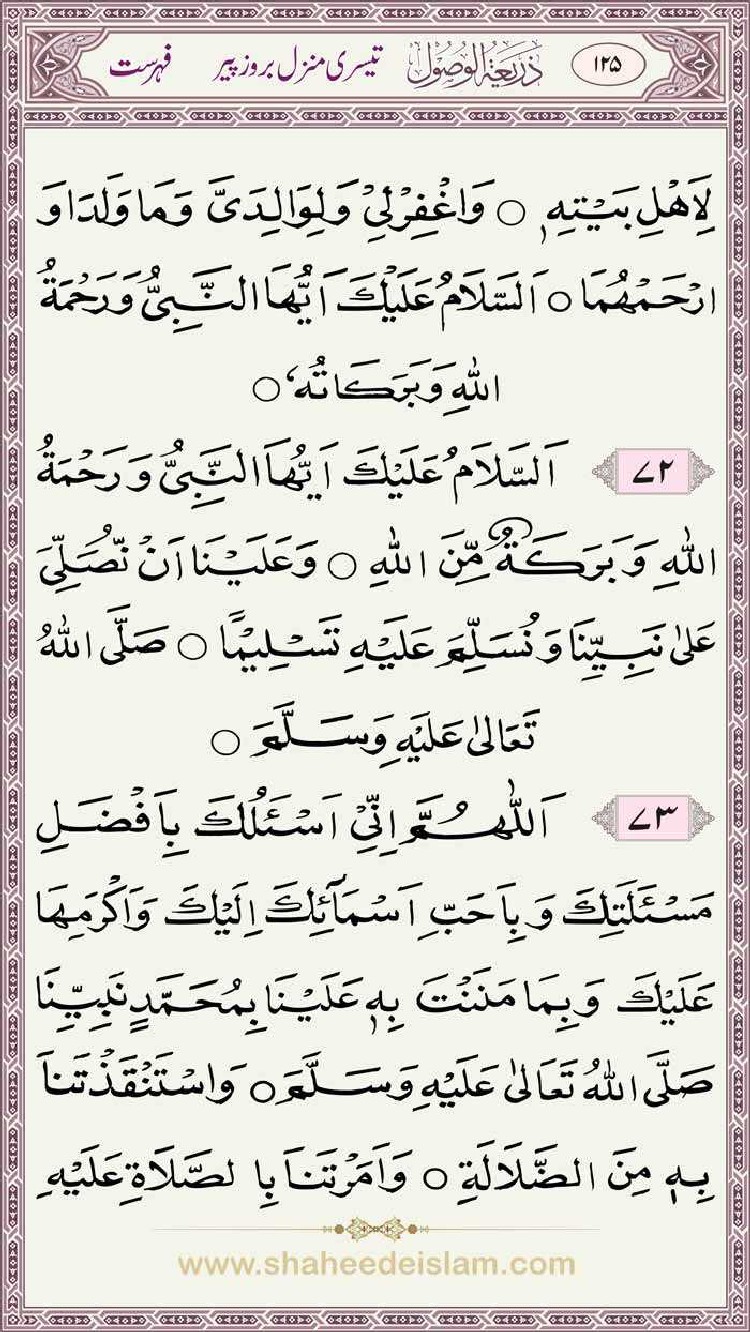 ۱۲۵ ذَرِیعَۃُ الوُصُول تیسری منزل بروز پیر فہرست
لِاَهْلِ بَيْتِهٖ ○ وَاغْفِرْلِیْ وَلِوَالِدَیَّ وَمَا وَلَدَا وَ
ارْحَمْهُمَا ○ اَلسَّلَامُ عَلَيْكَ اَيُّهَا النَّبِیُّ وَرَحْمَةُ
اللهِ وَبَرَكَاتُهٗ ○
۷۲ اَلسَّلَامُ عَلَيْكَ اَيُّهَا النَّبِیُّ وَرَحْمَةُ
اللهِ وَبَرَكَةٌ مِّنَ اللهِ ○ وَعَلَيْنَا اَنْ نُّصَلِّیَ
عَلٰی نَبِيِّنَا وَنُسَلِّمَ عَلَيْهِ تَسْلِيْمًا ○ صَلَّی اللهُ
تَعَالٰی عَلَيْهِ وَسَلَّمَ ○
۷۳ اَللّٰهُمَّ اِنِّیْ اَسْئَلُكَ بِاَفْضَلِ
مَسْئَلَتِكَ وَبِاَحَبِّ اَسْمَآئِكَ اِلَيْكَ وَاَكْرَمِهَا
عَلَيْكَ وَبِمَا مَنَنْتَ بِهٖ عَلَيْنَا بِمُحَمَّدٍ نَبِيِّنَا
صَلَّی اللهُ تَعَالٰی عَلَيْهِ وَسَلَّمَ ○ وَاسْتَنْقَذْتَنَا
بِهٖ مِنَ الضَّلَالَةِ ○ وَاَمَرْتَنَا بِا لصَّلَاةِ عَلَيْهِ
www.shaheedeislam.com